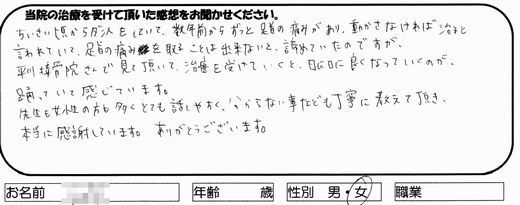 当院の治療を受けて頂いた感想をお聞かせください。
ちいさい頃からダンスをしていて、数年前からずっと足首の痛みがあり、動かさなければ治ると
言われていて、足首の痛みを取ることは出来ないと、諦めていたのですが、
平川接骨院さんで見て頂いて、治療を受けていくと、日に日に良くなっていくのが、
踊っていて感じています。
先生も女性の方も多くとても話しやすく、分からない事なども丁寧に教えて頂き、
本当に感謝しています。ありがとうございます。
お名前 年齢 歳 性別 男・女 職業